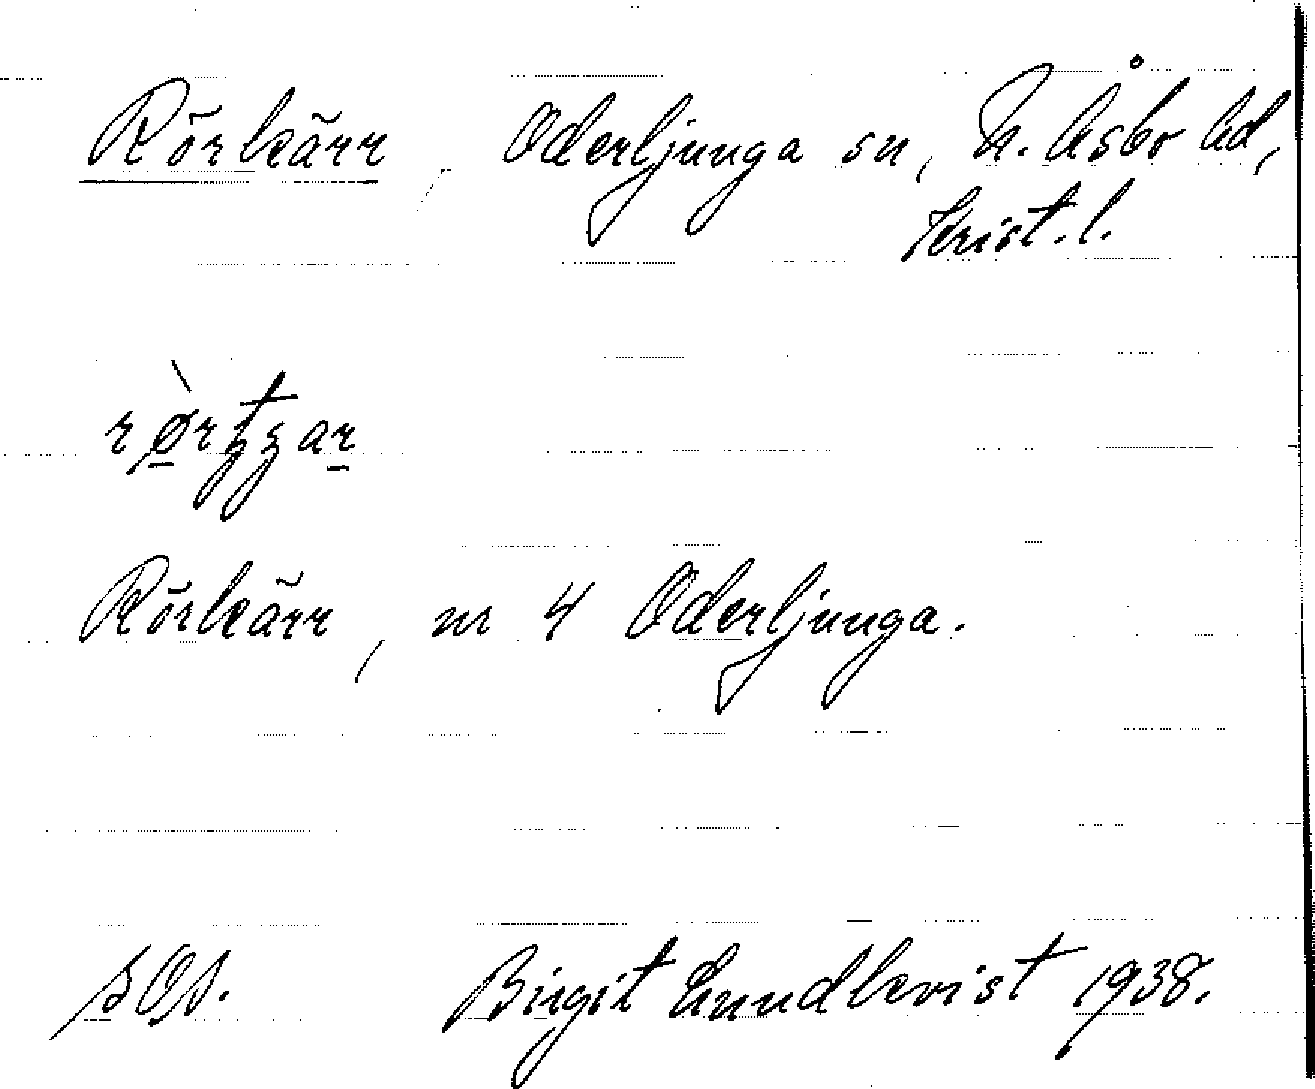 Rörkärr, Oderljunga sn, N. Åsbo hd,
Krist. l.
Rörkärr, nr 4 Oderljunga.
SOS. Birgit Lundkvist 1938.